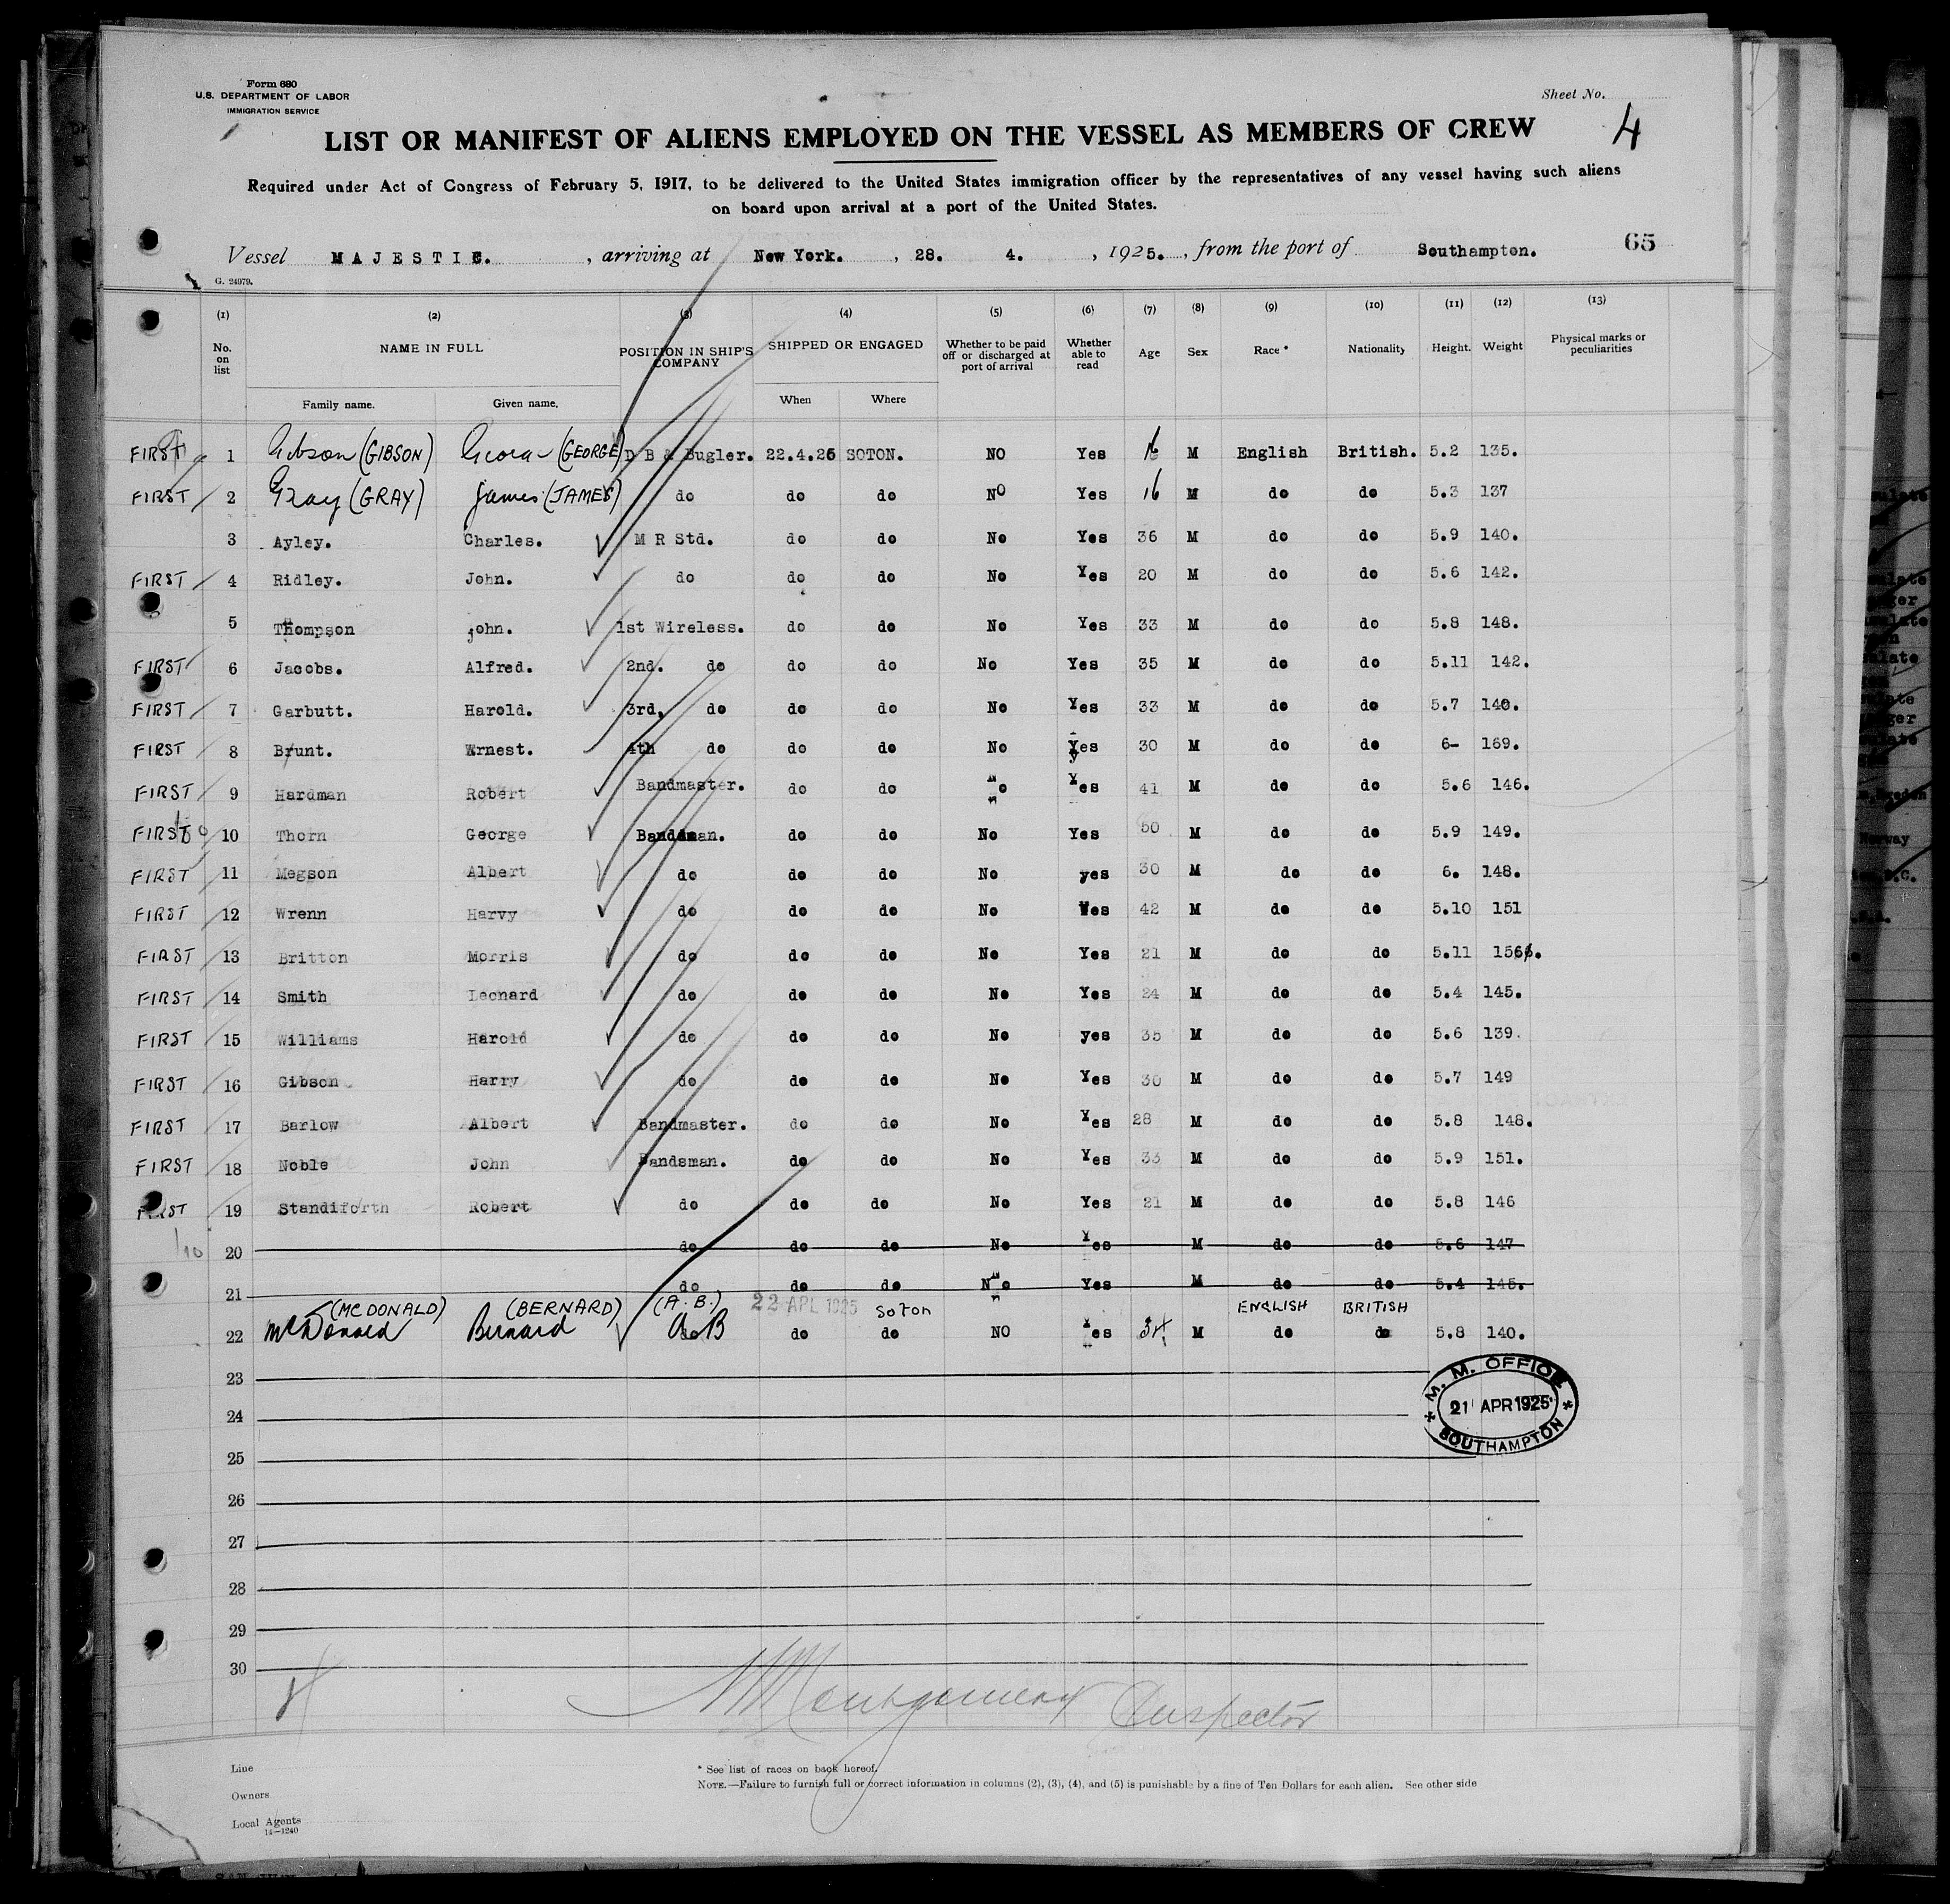 Form 680
U.S. DEPARTMENT OF LABOR
IMMIGRATION SERVICE
Sheet No.
4
LIST OR MANIFEST OF ALIENS EMPLOYED ON THE VESSEL AS MEMBERS OF CREW
Required under Act of Congress of February 5, 1917, to be delivered to the United States immigration officer by the representatives of any vessel having such aliens
on board upon arrival at a port of the United States.
Vessel MAJESTIC. , arriving at New York. , 28. 4. , 1925. , from the port of Southampton. 65
G. 24979.
(1) (2) (3) (4) (5) (6) (7) (8) (9) (10) (11) (12) (13)
No. on list NAME IN FULL POSITION IN SHIP'S COMPANY SHIPPED OR ENGAGED Whether to be paid off or discharged at port of arrival Whether able to read Age Sex Race * Nationality Height. Weight Physical marks or peculiarities
Family name. Given name. When Where
FIRST 1 Gibson (GIBSON) (GEORGE) D B & Bugler. 22.4.25 SOTON. NO Yes 16 M English British. 5.2 135.
FIRST 2 Gray (GRAY) James (JAMES) do do do NO Yes 16 M do do 5.3 137
3 Ayley. Charles. M R Std. do do No Yes 36 M do do 5.9 140.
FIRST 4 Ridley. John. do do do No Yes 20 M do do 5.6 142.
5 Thompson john. 1st Wireless. do do No Yes 33 M do do 5.8 148.
FIRST 6 Jacobs. Alfred. 2nd. do do do No Yes 35 M do do 5.11 142.
FIRST 7 Garbutt. Harold. 3rd. do do do No Yes 33 M do do 5.7 140.
FIRST 8 Brunt. Ernest. 4th do do do No Yes 30 M do do 6- 169.
FIRST 9 Hardman Robert Bandmaster. do do No Yes 41 M do do 5.6 146.
FIRST 10 Thorn George Bandsman. do do No Yes 50 M do do 5.9 149.
FIRST 11 Megson Albert do do do No yes 30 M do do 6. 148.
FIRST 12 Wrenn Harvy do do do No Yes 42 M do do 5.10 151
FIRST 13 Britton Morris do do do No Yes 21 M do do 5.11 156.
FIRST 14 Smith Leonard do do do No Yes 24 M do do 5.4 145.
FIRST 15 Williams Harold do do do No yes 35 M do do 5.6 139.
FIRST 16 Gibson Harry do do do No Yes 30 M do do 5.7 149
FIRST 17 Barlow Albert Bandmaster. do do No Yes 28 M do do 5.8 148.
FIRST 18 Noble John Bandsman. do do No Yes 33 M do do 5.9 151.
FIRST 19 Standiforth Robert do do do No Yes 21 M do do 5.8 146
20 do do do No Yes M do do 5.6 147
21 do do do No Yes M do do 5.4 145.
(MCDONALD) (BERNARD) (A.B.) 22 APL 1925 SOTON ENGLISH BRITISH
22 McDonald Bernard AB do do NO Yes 34 M do do 5.8 140.
23
24
25
26
27
28
29
30
M. M. OFFICE
21 APR 1925
SOUTHAMPTON
Montgomery Inspector
Line
Owners
Local Agents
14—1240
* See list of races on back hereof.
NOTE.—Failure to furnish full or correct information in columns (2), (3), (4), and (5) is punishable by a fine of Ten Dollars for each alien. See other side